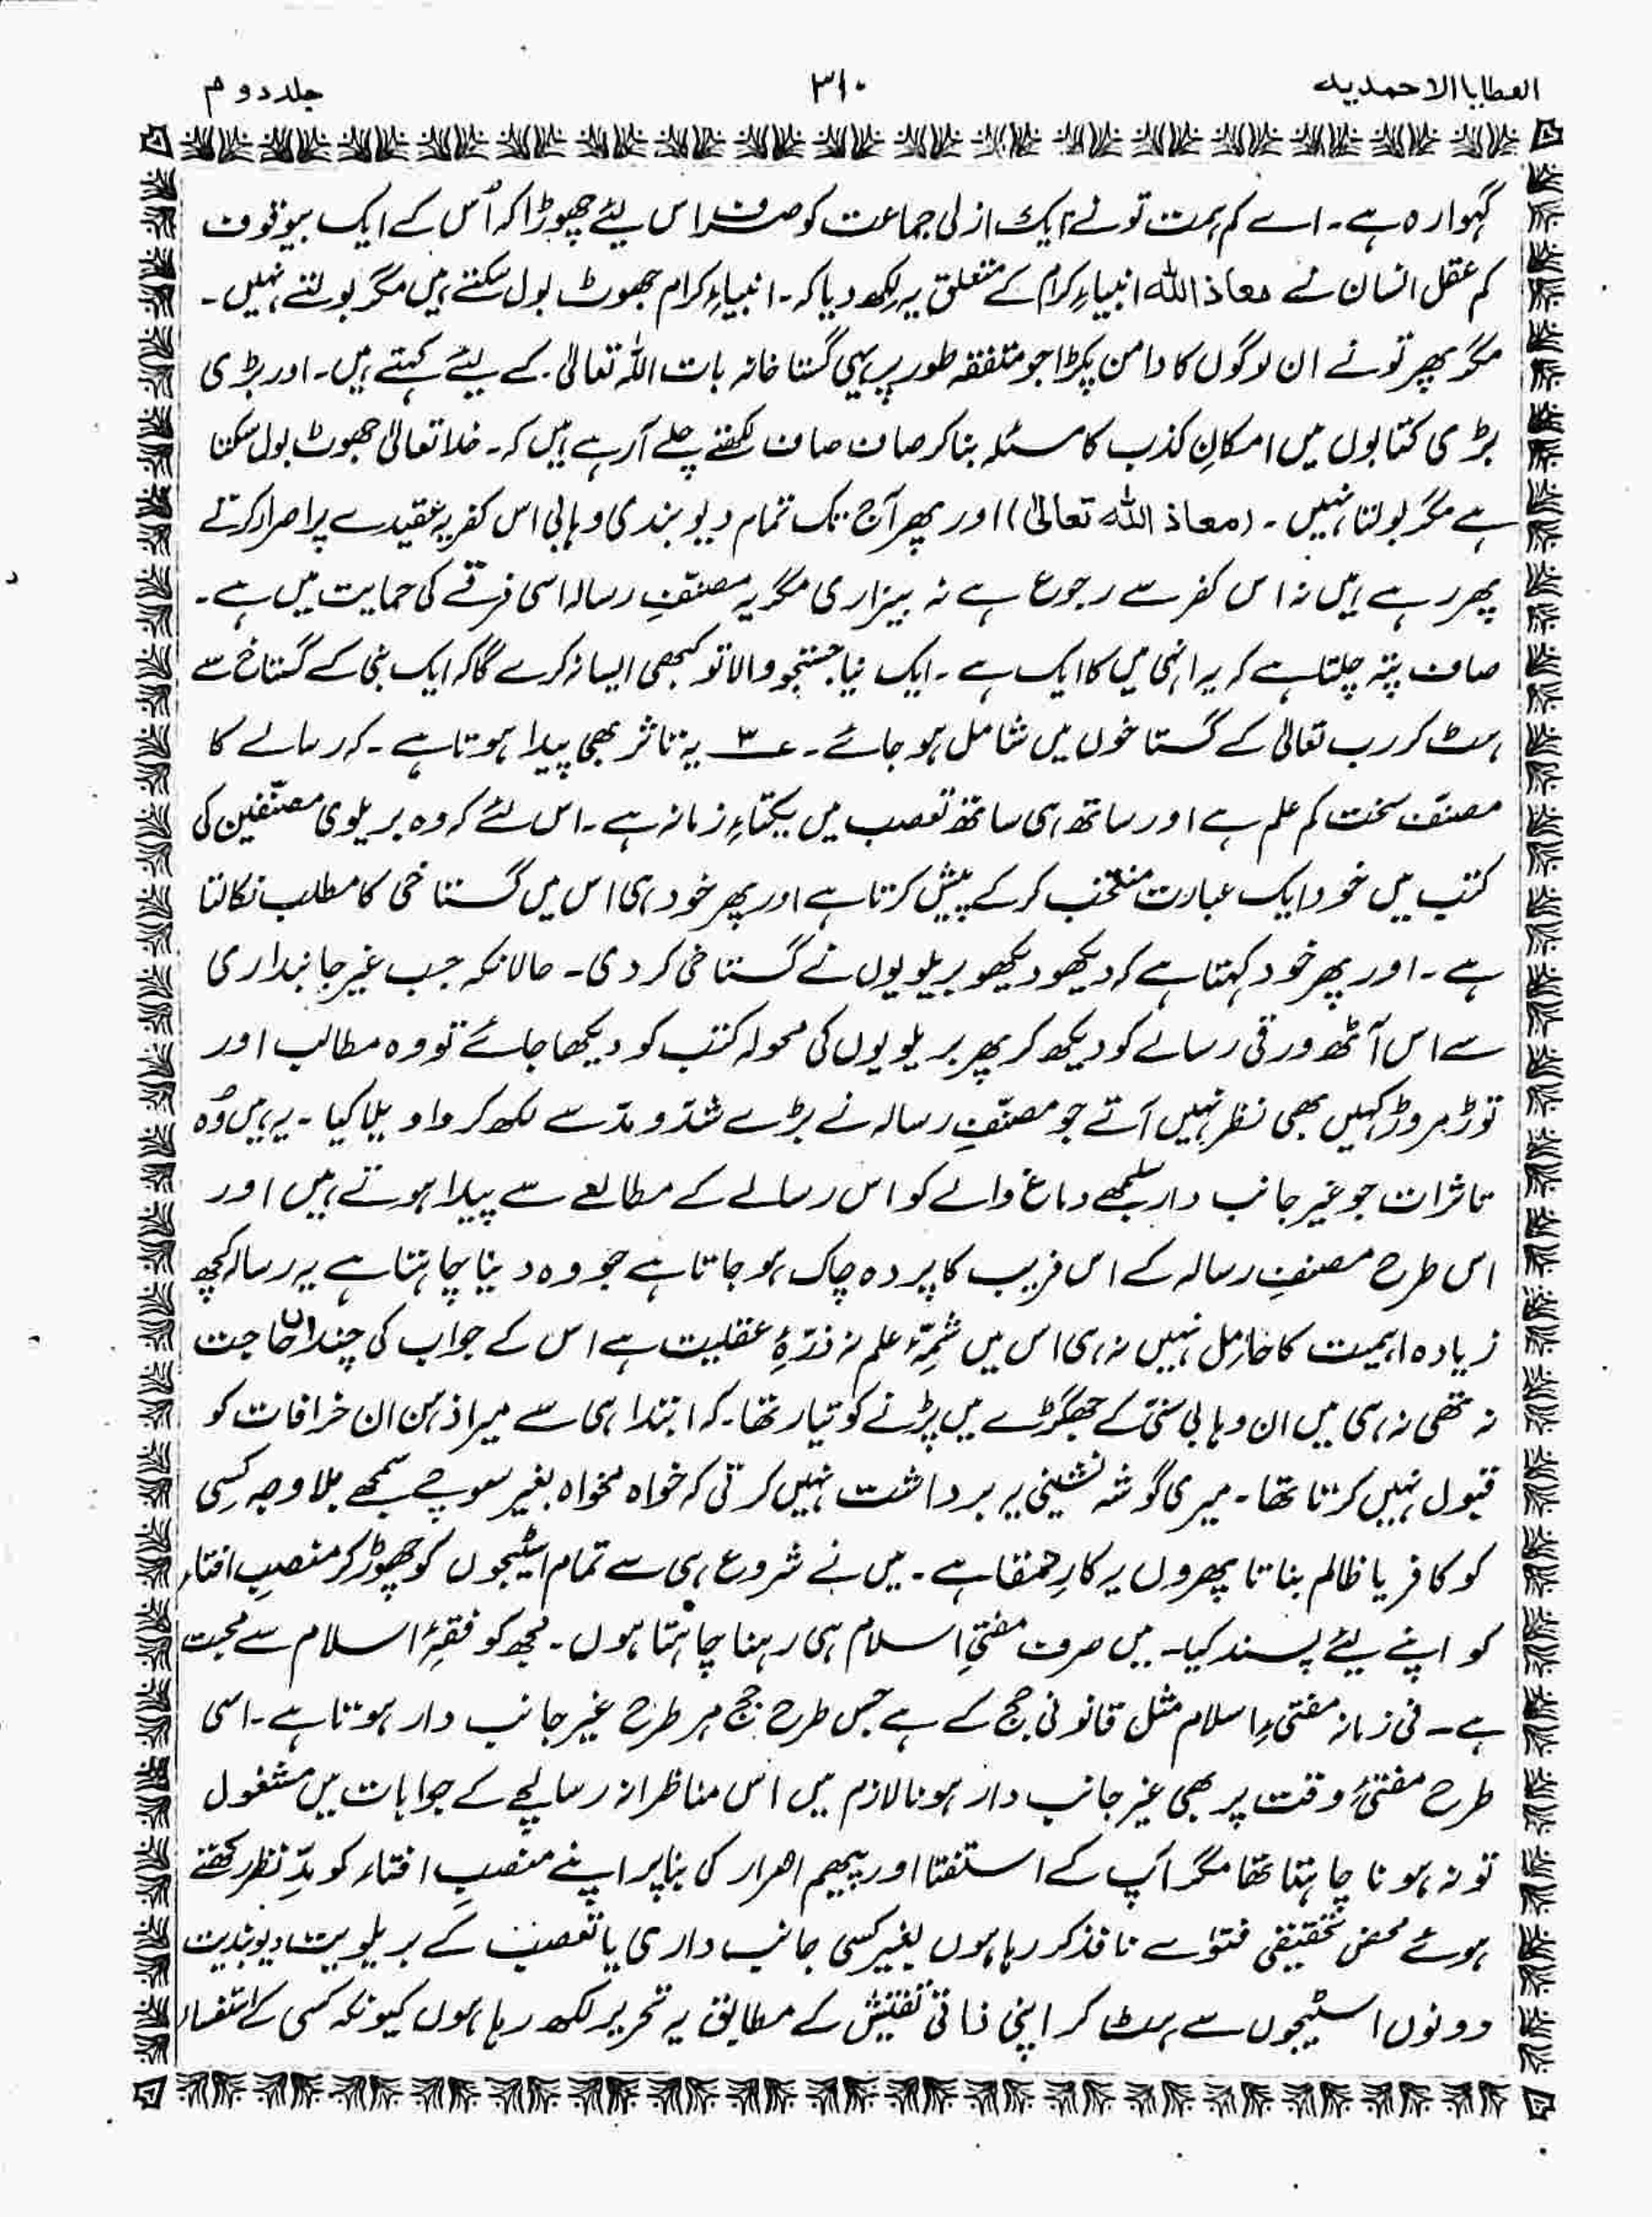 العطایا الاحمدیہ
۳۱۰
جلد دوم
گہوارہ ہے۔ اے کم ہمت تونے ایک ازلی جماعت کو صرف اس لیئے چھوڑا کہ اُس کے ایک بیوقوف
کم عقل انسان نے معاذ اللہ انبیاءِ کرام کے متعلق یہ لکھ دیا کہ۔ انبیاءِ کرام جھوٹ بول سکتے ہیں مگر بولتے نہیں۔
مگر پھر تونے ان لوگوں کا دامن پکڑا جو متفقہ طور پر یہی گستاخانہ بات اللہ تعالیٰ کے لیئے کہتے ہیں۔ اور بڑی
بڑی کتابوں میں امکانِ کذب کا مسئلہ بنا کر صاف صاف لکھتے چلے آرہے ہیں کہ۔ خدا تعالیٰ جھوٹ بول سکتا
ہے مگر بولتا نہیں۔ (معاذ اللہ تعالیٰ) اور پھر آج تک تمام دیوبندی وہابی اس کفریہ عقیدے پر اصرار کرتے
پھر رہے ہیں نہ اس کفر سے رجوع ہے نہ بیزاری مگر یہ مصنّفِ رسالہ اسی فرقے کی حمایت میں ہے۔
صاف پتہ چلتا ہے کہ یہ انہی میں کا ایک ہے۔ ایک نیا جستجو والا تو کبھی ایسا نہ کرے گا کہ ایک نبی کے گستاخ سے
ہٹ کر رب تعالیٰ کے گستاخوں میں شامل ہو جائے۔ ۳ یہ تاثر بھی پیدا ہوتا ہے۔ کہ رسالے کا
مصنّف سخت کم علم ہے اور ساتھ ہی ساتھ تعصب میں یکتاءِ زمانہ ہے۔ اس لئے کہ وہ بریلوی مصنّفین کی
کتب میں خود ایک عبارت منتخب کر کے پیش کرتا ہے اور پھر خود ہی اس میں گستاخی کا مطلب نکالتا
ہے۔ اور پھر خود کہتا ہے کہ دیکھو دیکھو بریلویوں نے گستاخی کر دی۔ حالانکہ جب غیر جانبداری
سے اس آٹھ ورقی رسالے کو دیکھ کر پھر بریلویوں کی محولہ کتب کو دیکھا جائے تو وہ مطالب اور
توڑ مروڑ کہیں بھی نظر نہیں آتے جو مصنّفِ رسالہ نے بڑے شدّ و مدّ سے لکھ کر واویلا کیا۔ یہ ہیں وُہ
تاثرات جو غیر جانب دار سلجھے دماغ والے کو اس رسالے کے مطالعے سے پیدا ہوتے ہیں اور
اس طرح مصنفِ رسالہ کے اس فریب کا پردہ چاک ہو جاتا ہے جو وہ دینا چاہتا ہے یہ رسالہ کچھ
زیادہ اہمیت کا حامل نہیں نہ ہی اس میں شمِّہٴ علم نہ ذرّہٴ عقلیت ہے اس کے جواب کی چنداں حاجت
نہ تھی نہ ہی میں ان وہابی سنّی کے جھگڑے میں پڑنے کو تیار تھا۔ کہ ابتدا ہی سے میرا ذہن ان خرافات کو
قبول نہیں کرتا تھا۔ میری گوشہ نشینی یہ برداشت نہیں کرتی کہ خواہ مخواہ بغیر سوچے سمجھے بلا وجہ کِسی
کو کافر یا ظالم بناتا پھروں یہ کارِ حمقا ہے۔ میں نے شروع ہی سے تمام اسٹیجوں کو چھوڑ کر منصبِ افتاء
کو اپنے لیئے پسند کیا۔ میں صرف مفتیِ اسلام ہی رہنا چاہتا ہوں۔ مجھ کو فقہِٴ اسلام سے محبت
ہے۔ فی زمانہ مفتیءِ اسلام مثل قانونی جج کے ہے جس طرح جج ہر طرح غیر جانب دار ہوتا ہے۔ اسی
طرح مفتیٴ وقت پر بھی غیر جانب دار ہونا لازم میں اس مناظرانہ رسالچے کے جوابات میں مشغول
تو نہ ہونا چاہتا تھا مگر آپ کے استفتا اور پیچھم اصرار کی بنا پر اپنے منصبِ افتاء کو مدِّ نظر رکھتے
ہوئے محض تحقیقی فتوٰے نافذ کر رہا ہوں بغیر کسی جانب داری یا تعصب کے بریلویت دیوبندیت
دونوں اسٹیجوں سے ہٹ کر اپنی ذاتی تفتیش کے مطابق یہ تحریر لکھ رہا ہوں کیونکہ کسی کے استفسار